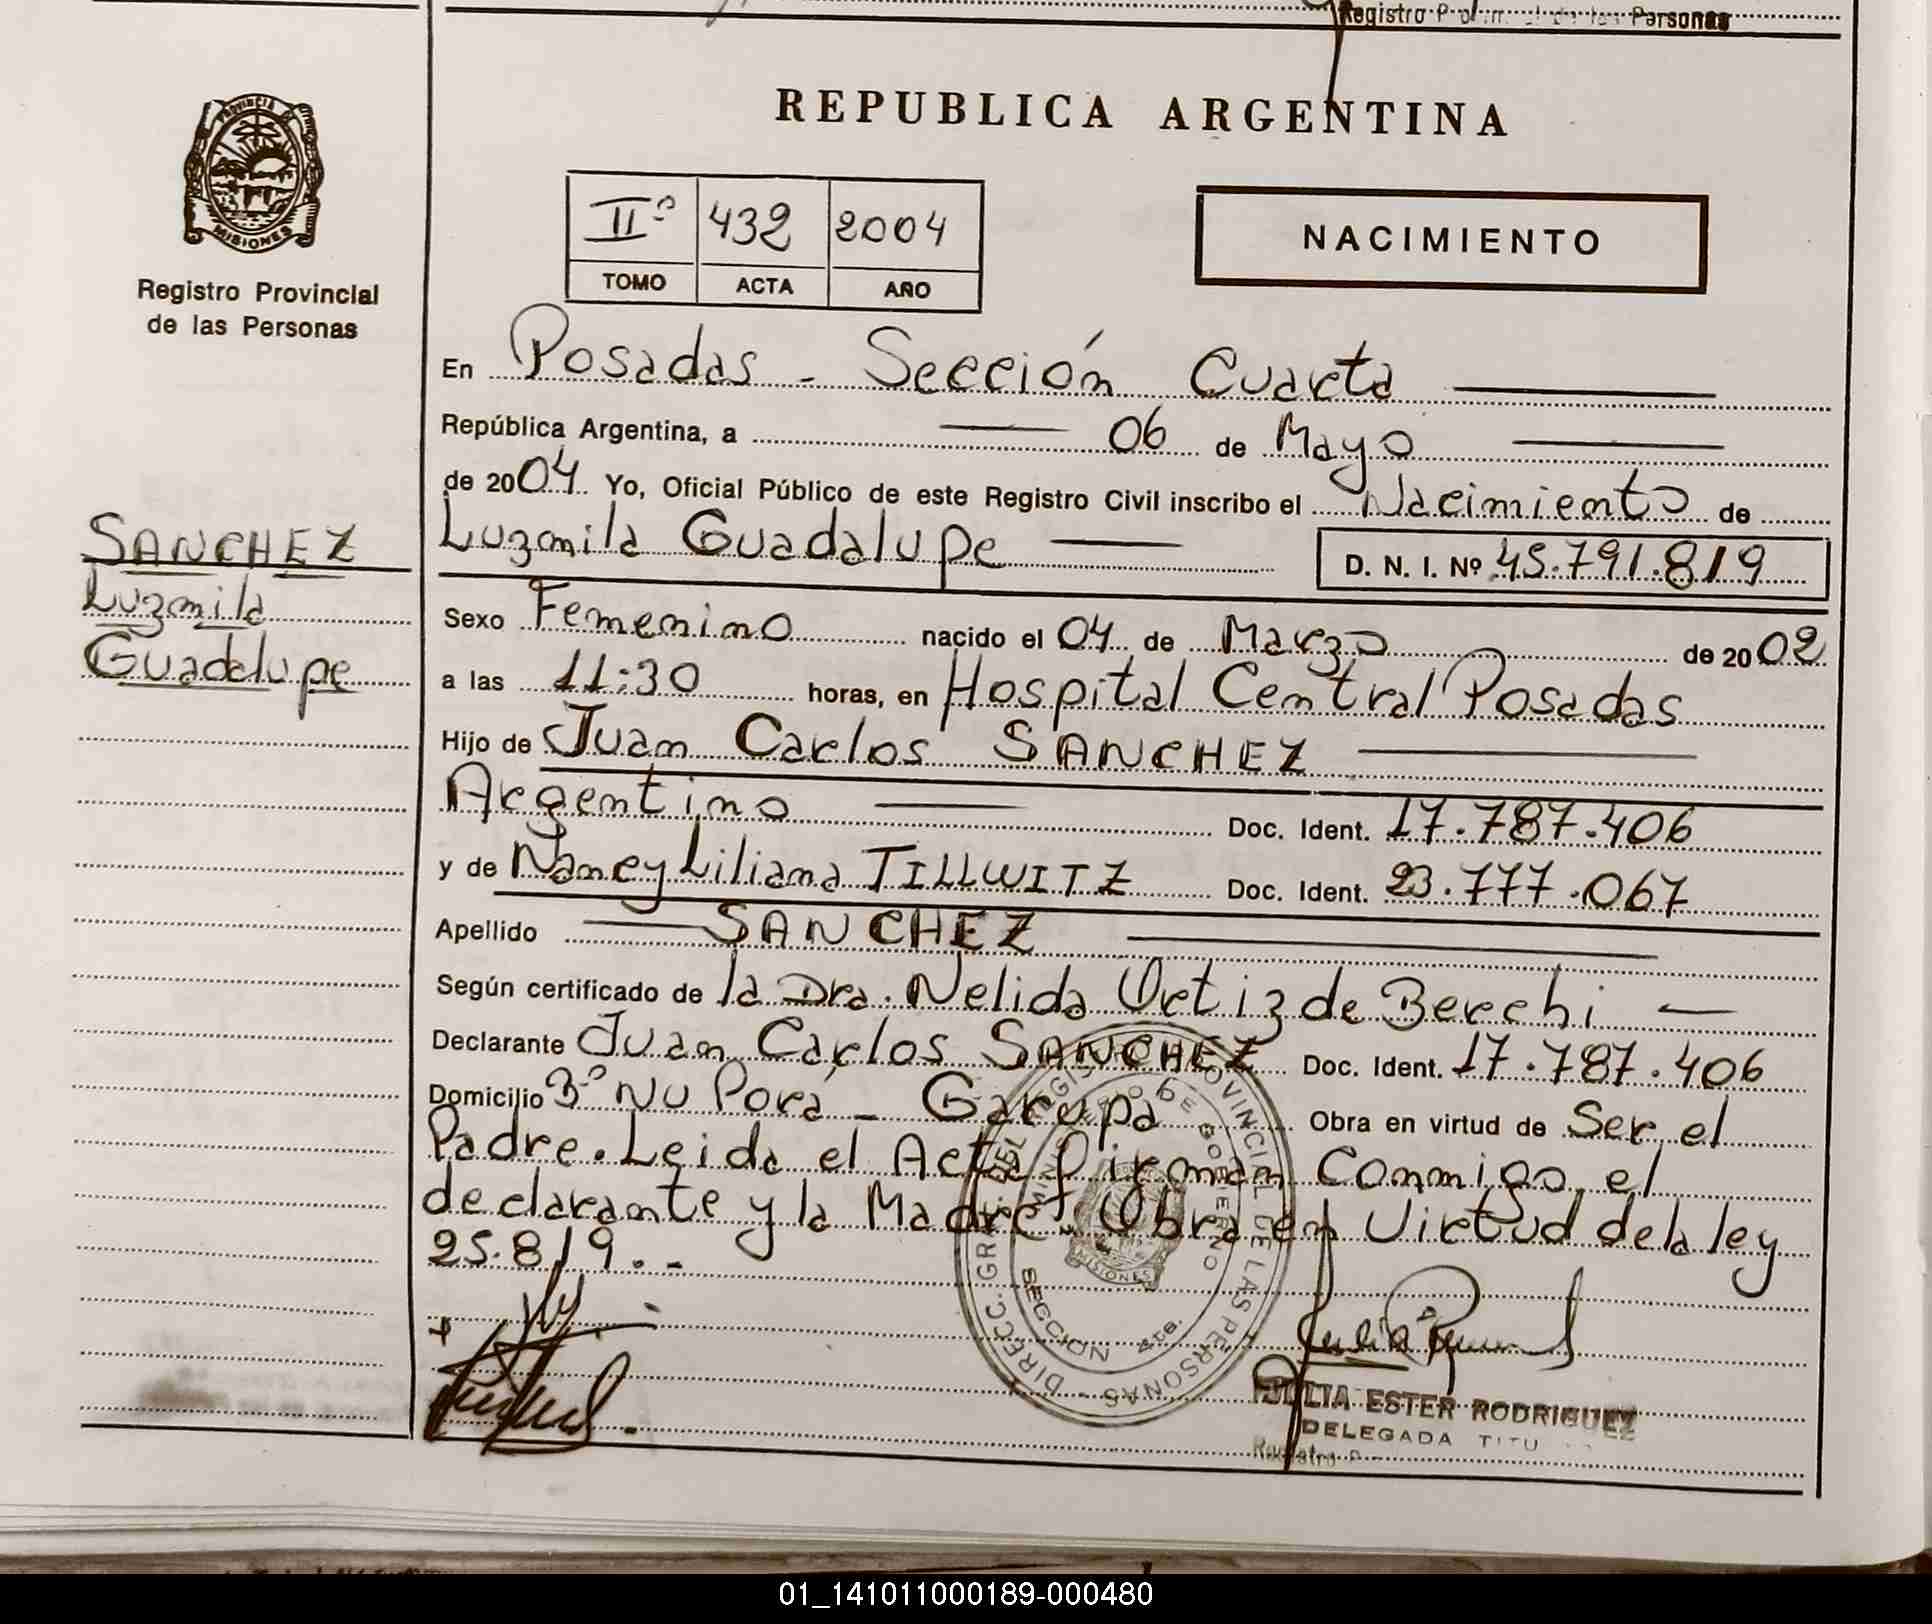 Registro P
Personas
REPUBLICA ARGENTINA
PROVINCIA DE
MISIONES
Registro Provincial
de las Personas
IIº 432 2004
TOMO ACTA AÑO
NACIMIENTO
En Posadas - Sección Cuarta
República Argentina, a 06 de Mayo
de 2004 Yo, Oficial Público de este Registro Civil inscribo el Nacimiento de
Luzmila Guadalupe D. N. I. Nº 45.791.819
SANCHEZ
Luzmila
Guadalupe
Sexo Femenino nacido el 04 de Marzo de 2002
a las 11:30 horas, en Hospital Central Posadas
Hijo de Juan Carlos SANCHEZ
Argentino Doc. Ident. 17.787.406
y de Nancy Liliana TILLWITZ Doc. Ident. 23.777.067
Apellido SANCHEZ
Según certificado de la Dra. Nelida Ortiz de Berchi
Declarante Juan Carlos SANCHEZ Doc. Ident. 17.787.406
Domicilio Bº Ñu Porá - Garupa Obra en virtud de Ser el
Padre. Leida el Acta firman Conmigo el
declarante y la Madre. Obra en Virtud de la ley
25.819.-
DIRECC. GRAL. DEL REGISTRO PROVINCIAL DE LAS PERSONAS -
MINISTERIO DE GOBIERNO
MISIONES
SECCION 4ta.
JULIA ESTER RODRIGUEZ
DELEGADA TITU
Registro P
01_141011000189-000480